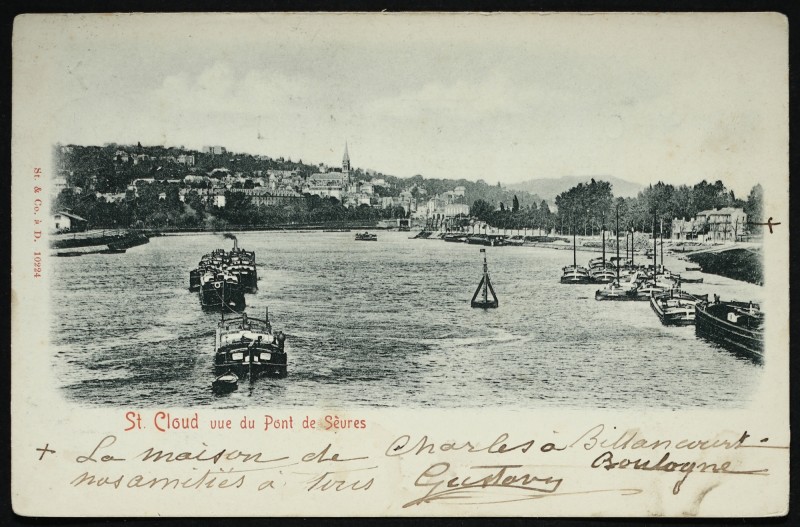 St. & Co. à D. 10224
St. Cloud vue du Pont de Sèvres
+ La maison de Charles à Billancourt-
Boulogne
nos amitiés à tous Gustave